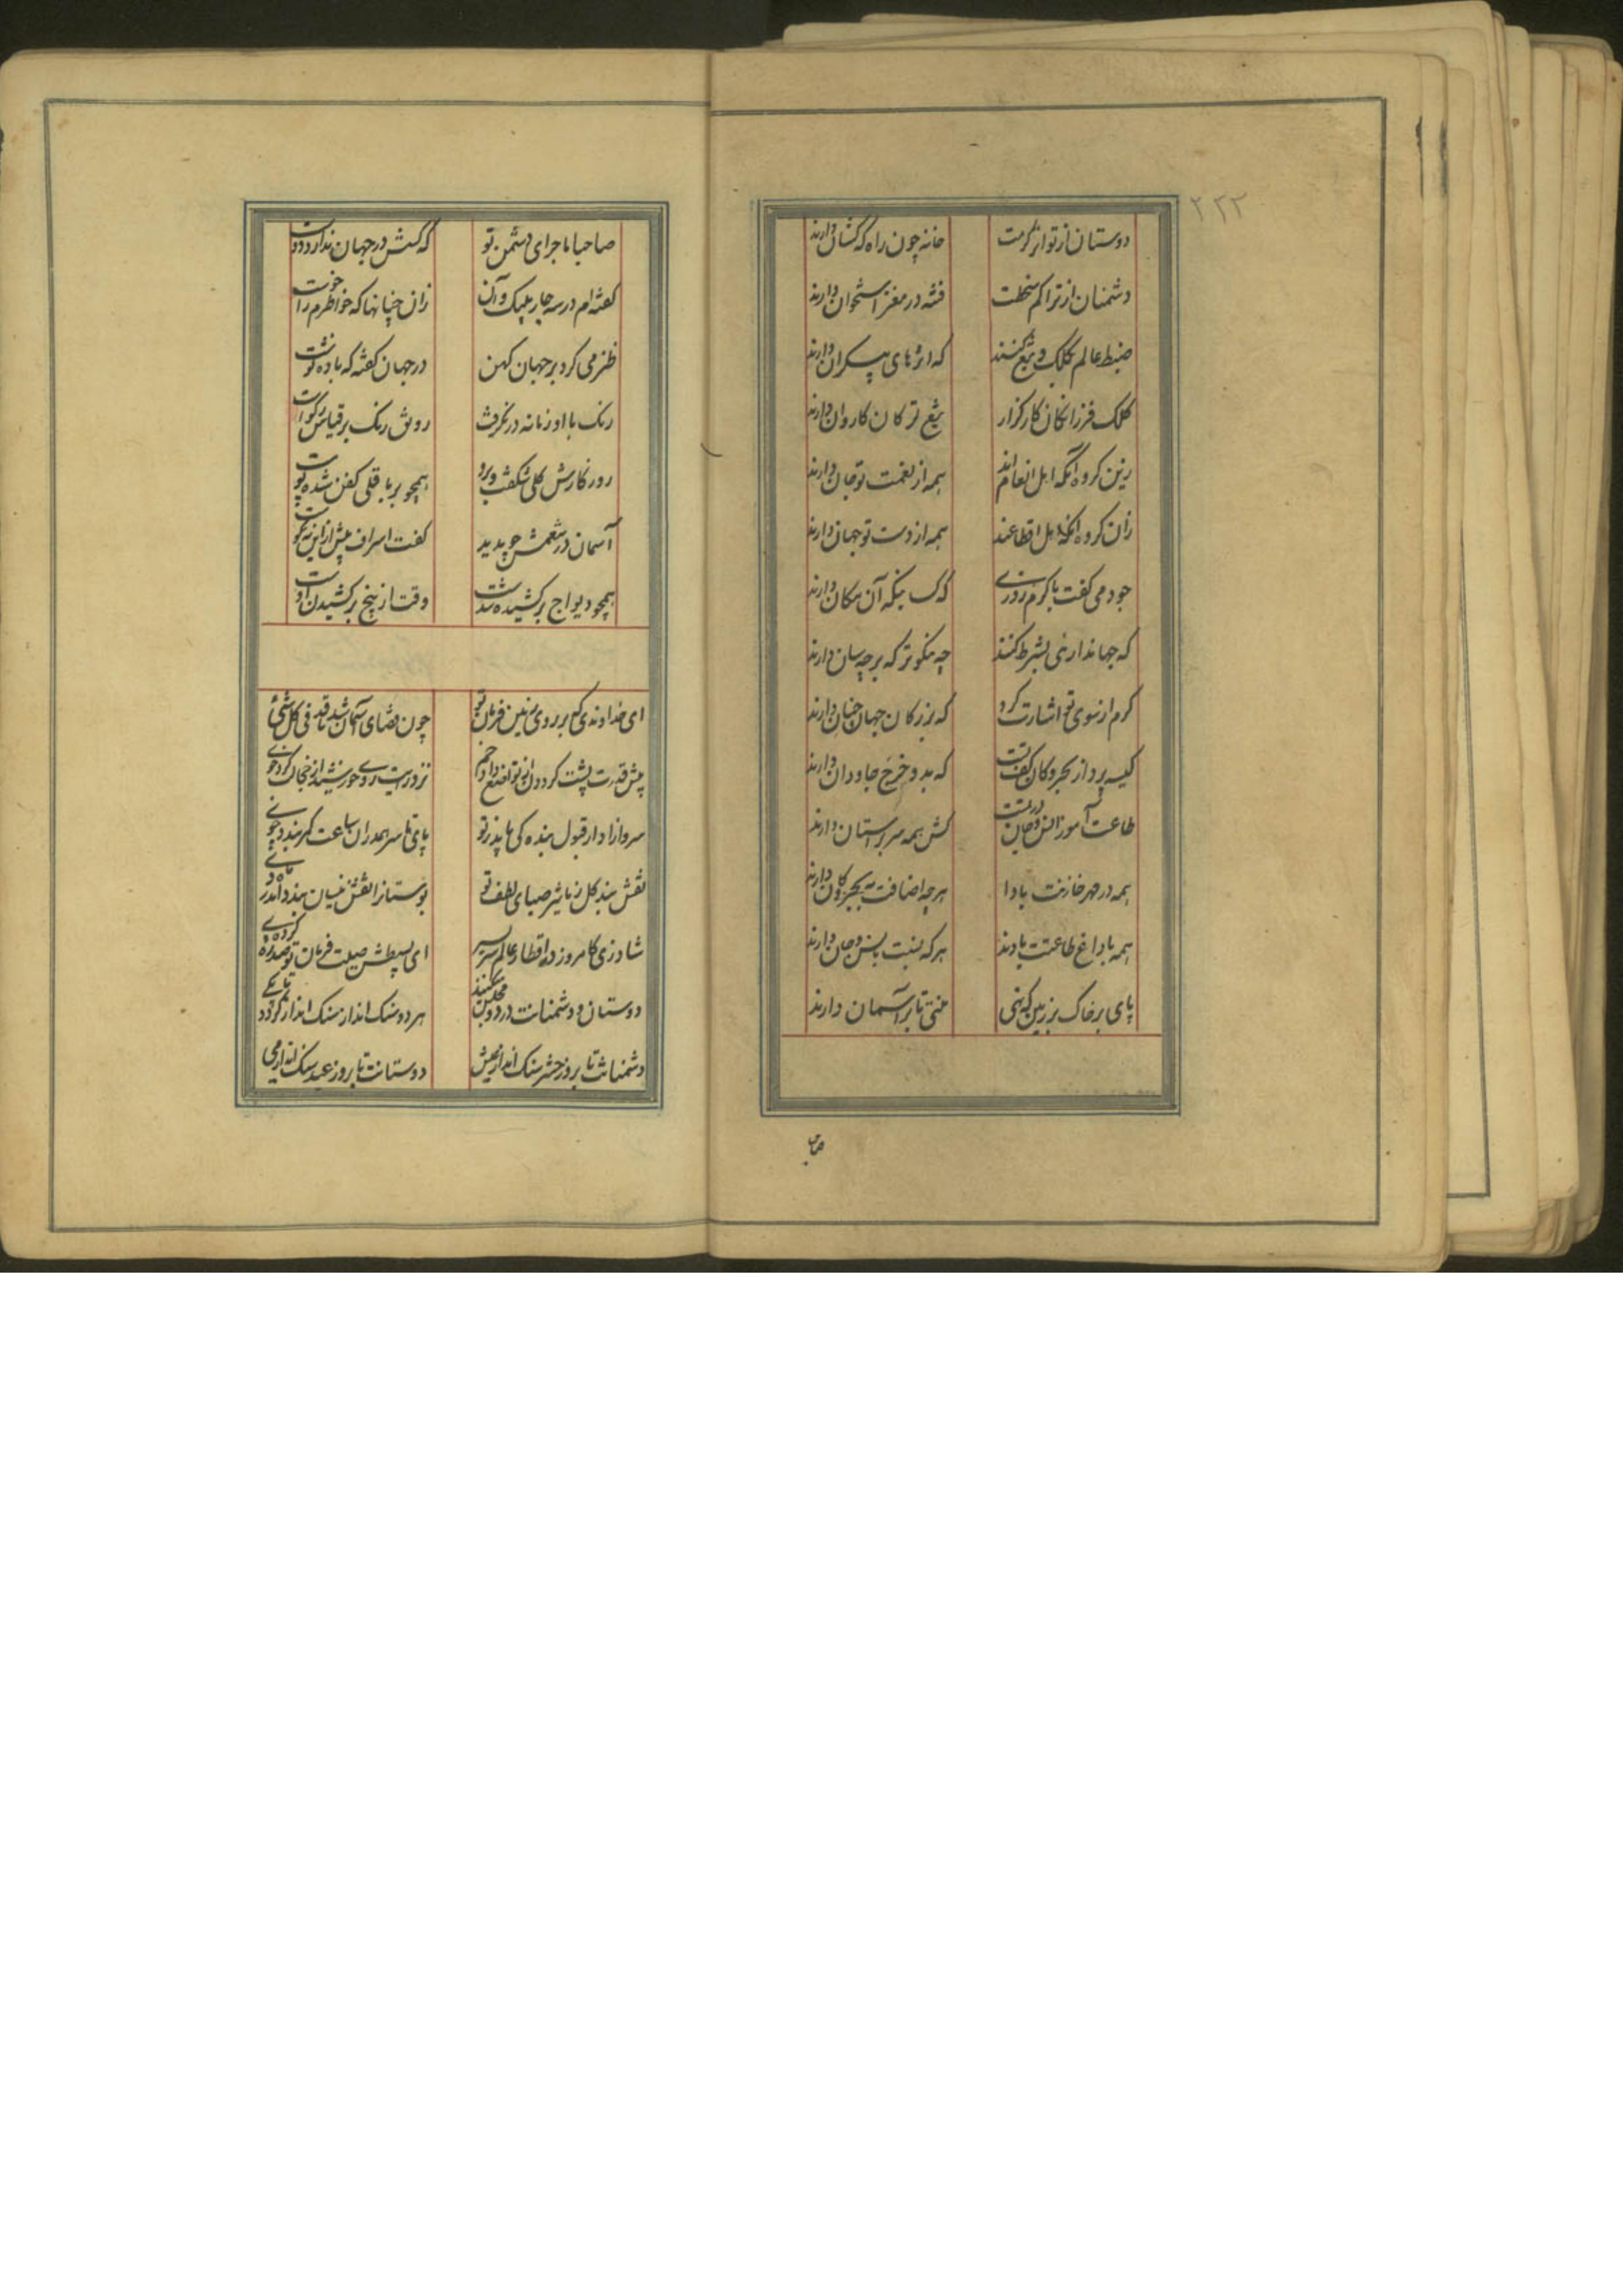 ۲۲۲
دوستان از تواتر کرمت خانه چون راه کهکشان دارند
دشمنان از تراکم سخطت فتنه در مغز استخوان دارند
ضبط عالم بکلک و تیغ کنند که اثرهای بیکران دارند
کلک فرزانگان کارگزار تیغ ترکان کاروان دارند
زین کروه آنکه اهل انعام اند همه از نعمت تو جان دارند
زان کروه آنکه اهل اقطاعند همه از دست تو جهان دارند
جود می گفت با کرم روزی که کسی نیکه آن مکان دارند
که جهانداری بشرط کنند چه نکوتر که بر چه سان دارند
کرم از سوی تو اشارت کرد که بزرکان جهان چنان دارند
کیسه پرداز بحر و کان کف تست که بدو خرج جاودان دارند
طاعت آموز انس و جان در تست کش همه سر بر آستان دارند
همه در مهر خازنت بادا هرچه اضافت به بحر و کان دارند
همه با داغ طاعتت بادند هرکه نسبت بانس و جان دارند
پای بر خاک هر زمین که نهی منتی تا بر آسمان دارند
صاحبا
صاحبا ماجرای دشمن تو که کسش در جهان ندارد دوست
گفته ام در سه چار بیتک و آن زان چنانها که خواطرم را خوست
طنز می کرد بر جهان کهن در جهان گفته که باده نوشت
رنک با او زمانه در نگرفت رونق رنک بر قیاس رکوست
روزگارش گلی شکفت و برو همچو بر باقلی کفن شده پوست
آسمان در تنعمش چو بدید گفت اسراف بیش ازین نه نکوست
همچو دیواج برکشیده شدست وقت از بیخ برکشیدن اوست
ای خداوندی که بر روی زمین فرمان تو چون قضای آسمان شد نافذ فی کل شئ
پیش قدرت پشت گردون از تواضع داده خم نزد رایت روی خورشید از خجالت کرده خوی
سرو آزاد ار قبول بنده کی یابد ز تو پای تا سر همدران ساعت کمر بندد چو نی
نقش بند گل ز تاثیر صبای لطف تو بوستانرا نقش نیسان بندد اندر ماه دی
شاد زی کامروز در اقطار عالم سربسر ای بسیطش صیت فرمان تو صد ره کرده طی
دوستان و دشمنانت در دو مجلس می کنند هر دو سنک انداز سنک اندازکردد تا بکی
دشمنانت تا بروز حشر سنک انداز عیش دوستانت تا بروز عید سنک انداز می